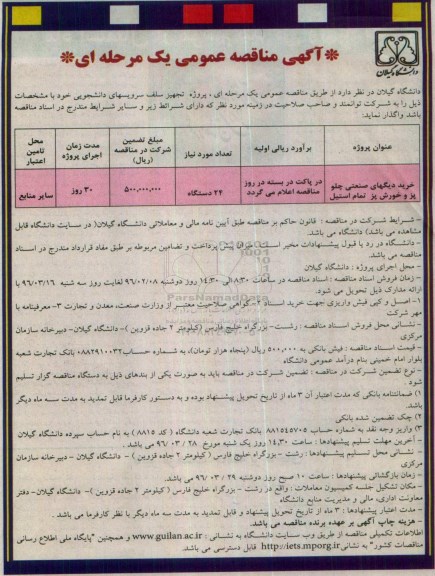 دانشگاه گیلان
*آگهی مناقصه عمومی یک مرحله ای*
دانشگاه گیلان در نظر دارد از طریق مناقصه عمومی یک مرحله ای ، پروژه تجهیز سلف سرویسهای دانشجویی خود با مشخصات
ذیل را به شرکت توانمند و صاحب صلاحیت در زمینه مورد نظر که دارای شرائط زیر و سایر شرایط مندرج در اسناد مناقصه
باشد واگذار نماید:
عنوان پروژه | برآورد ریالی اولیه | تعداد مورد نیاز | مبلغ تضمین شرکت در مناقصه (ریال) | مدت زمان اجرای پروژه | محل تامین اعتبار
خرید دیگهای صنعتی چلو پز و خورش پز تمام استیل | در پاکت در بسته در روز مناقصه اعلام می گردد | ۲۴ دستگاه | ۵۰۰,۰۰۰,۰۰۰ | ۳۰ روز | سایر منابع
- شرایط شرکت در مناقصه : قانون حاکم بر مناقصه طبق آیین نامه مالی و معاملاتی دانشگاه گیلان( در سایت دانشگاه قابل
مشاهده می باشد) دانشگاه می باشد.
- دانشگاه در رد یا قبول پیشنهادات مخیر است. میزان پیش پرداخت و تضامین مربوطه بر طبق مفاد قرارداد مندرج در اسناد
مناقصه می باشد.
- محل اجرای پروژه : دانشگاه گیلان
- زمان فروش اسناد مناقصه : اسناد مناقصه در ساعات ۸:۳۰ الی ۱۴:۳۰ روز دوشنبه ۹۶/۰۲/۰۸ لغایت روز سه شنبه ۹۶/۰۳/۱۶ با
ارائه مدارک ذیل تحویل می شود.
۱- اصل و کپی فیش واریزی جهت خرید اسناد ۲-گواهی صلاحیت معتبر از وزارت صنعت، معدن و تجارت ۳- معرفینامه با
مهر شرکت
- نشانی محل فروش اسناد مناقصه : رشت- بزرگراه خلیج فارس (کیلومتر ۲ جاده قزوین )- دانشگاه گیلان- دبیرخانه سازمان
مرکزی
- قیمت اسناد مناقصه : فیش بانکی به ۵۰۰,۰۰۰ ریال (پنجاه هزار تومان)، به شماره حساب ۰۸۸۲۹۱۰۰۳۲ بانک تجارت شعبه
بلوار امام خمینی بنام درآمد عمومی دانشگاه
- نوع تضمین شرکت در مناقصه : تضمین شرکت در مناقصه باید به صورت یکی از بندهای ذیل به دستگاه مناقصه گزار تسلیم
شود :
۱) ضمانتنامه بانکی که مدت اعتبار آن ۳ ماه از تاریخ تحویل پیشنهاد بوده و به دستور کارفرما قابل تمدید به مدت سه ماه دیگر
باشد.
۲) چک تضمین شده بانکی
۳) واریز وجه نقد به شماره حساب ۸۸۱۵۴۵۷۰۵ بانک تجارت شعبه دانشگاه ( کد ۸۸۱۵ ) به نام حساب سپرده دانشگاه گیلان
- آخرین مهلت تسلیم پیشنهادها : ساعت ۱۴,۳۰ روز یک شنبه مورخ ۲۸ / ۰۳ / ۹۶ می باشد .
- نشانی محل تسلیم پیشنهادها : رشت - بزرگراه خلیج فارس ( کیلومتر ۲ جاده قزوین ) – دانشگاه گیلان - دبیرخانه سازمان
مرکزی
- زمان بازگشائی پیشنهادها : ساعت ۱۰ صبح روز دوشنبه ۲۹ / ۰۳ / ۹۶ می باشد.
- مکان تشکیل جلسه کمیسیون معاملات : واقع در رشت – بزرگراه خلیج فارس ( کیلومتر ۲ جاده قزوین )- دانشگاه گیلان- دفتر
معاونت اداری، مالی و مدیریت منابع دانشگاه
- مدت اعتبار پیشنهادها : ۳ ماه از تاریخ تحویل پیشنهاد و قابل تمدید به مدت سه ماه دیگر با نظر کارفرما می باشد .
- هزینه چاپ آگهی بر عهده برنده مناقصه می باشد.
اطلاعات تکمیلی مناقصه از طریق وب سایت دانشگاه به نشانی : www.guilan.ac.ir و همچنین "پایگاه ملی اطلاع رسانی
مناقصات کشور" به نشانی http://iets.mporg.ir قابل دسترسی می باشد.